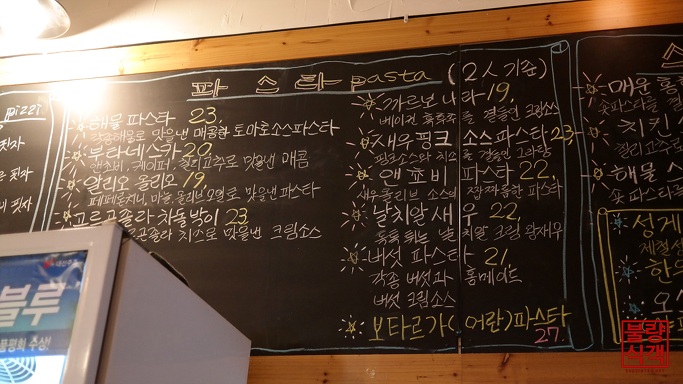 pizza
파스타 pasta (2人기준)
해물 파스타 23,
각종해물로 맛을낸 매콤한 토마토소스파스타
푸타네스카 20
맛을낸 매콤
알리오 올리오 19
페페론치니, 마늘, 올리브오일로 맛을낸 파스타
고르곤졸라 차돌박이 23
고르곤졸라 치즈로 맛을낸 크림소스
까르보나라 19,
베이컨, 흑후추를 곁들인 크림소스
새우핑크 소스파스타 23,
핑크소스와 치즈를 곁들인
앤쵸비 파스타 22,
새우올리브 소스의 짭짜름한 파스타
날치알 새우 22,
톡톡튀는 날치알 크림 왕새우
버섯 파스타 21,
각종 버섯과 홈메이드
버섯 크림소스
보타르가(어란)파스타
27.
매운 홍
치킨
해물 스
성게
제철성
한우
블루
품평회 수상!
불량
식객